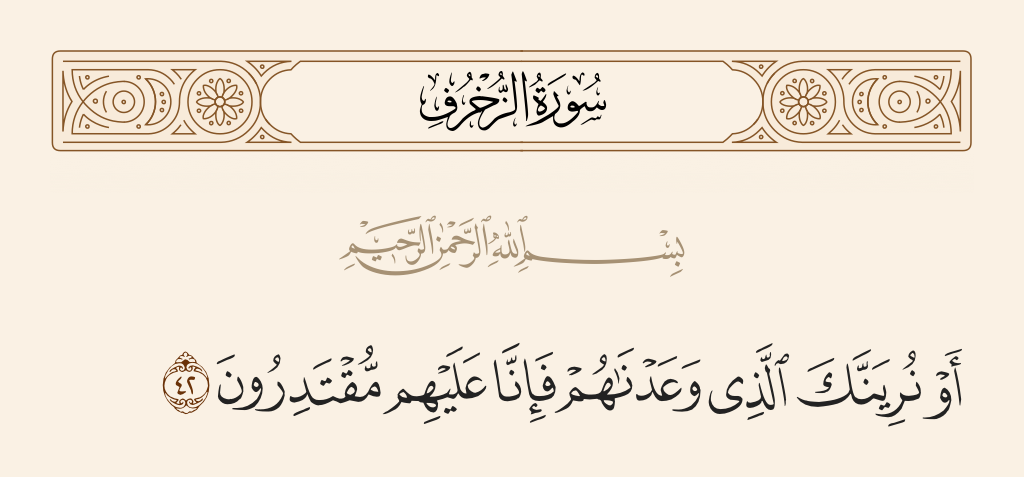 سُورَةُ الزُّخْرُفِ
بِسْمِ ٱللَّهِ ٱلرَّحْمَٰنِ ٱلرَّحِيمِ
أَوْ نُرِيَنَّكَ ٱلَّذِى وَعَدْنَٰهُمْ فَإِنَّا عَلَيْهِم مُّقْتَدِرُونَ ٤٢